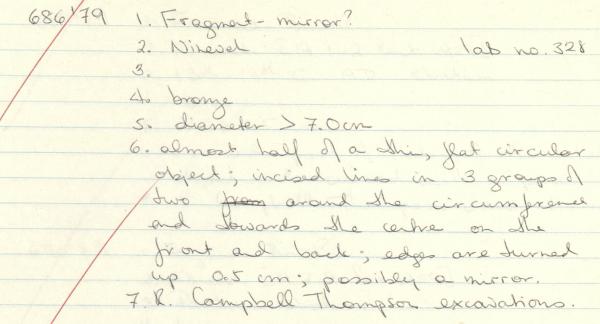 686/'79 1. Fragment - mirror?
2. Nineveh lab no. 328
3.
4. bronze
5. diameter > 7.0cm
6. almost half of a thin, flat circular
object; incised lines in 3 groups of
two from around the circumference
and towards the centre on the
front and back; edges are turned
up 0.5 cm; possibly a mirror.
7. R. Campbell Thompson excavations.